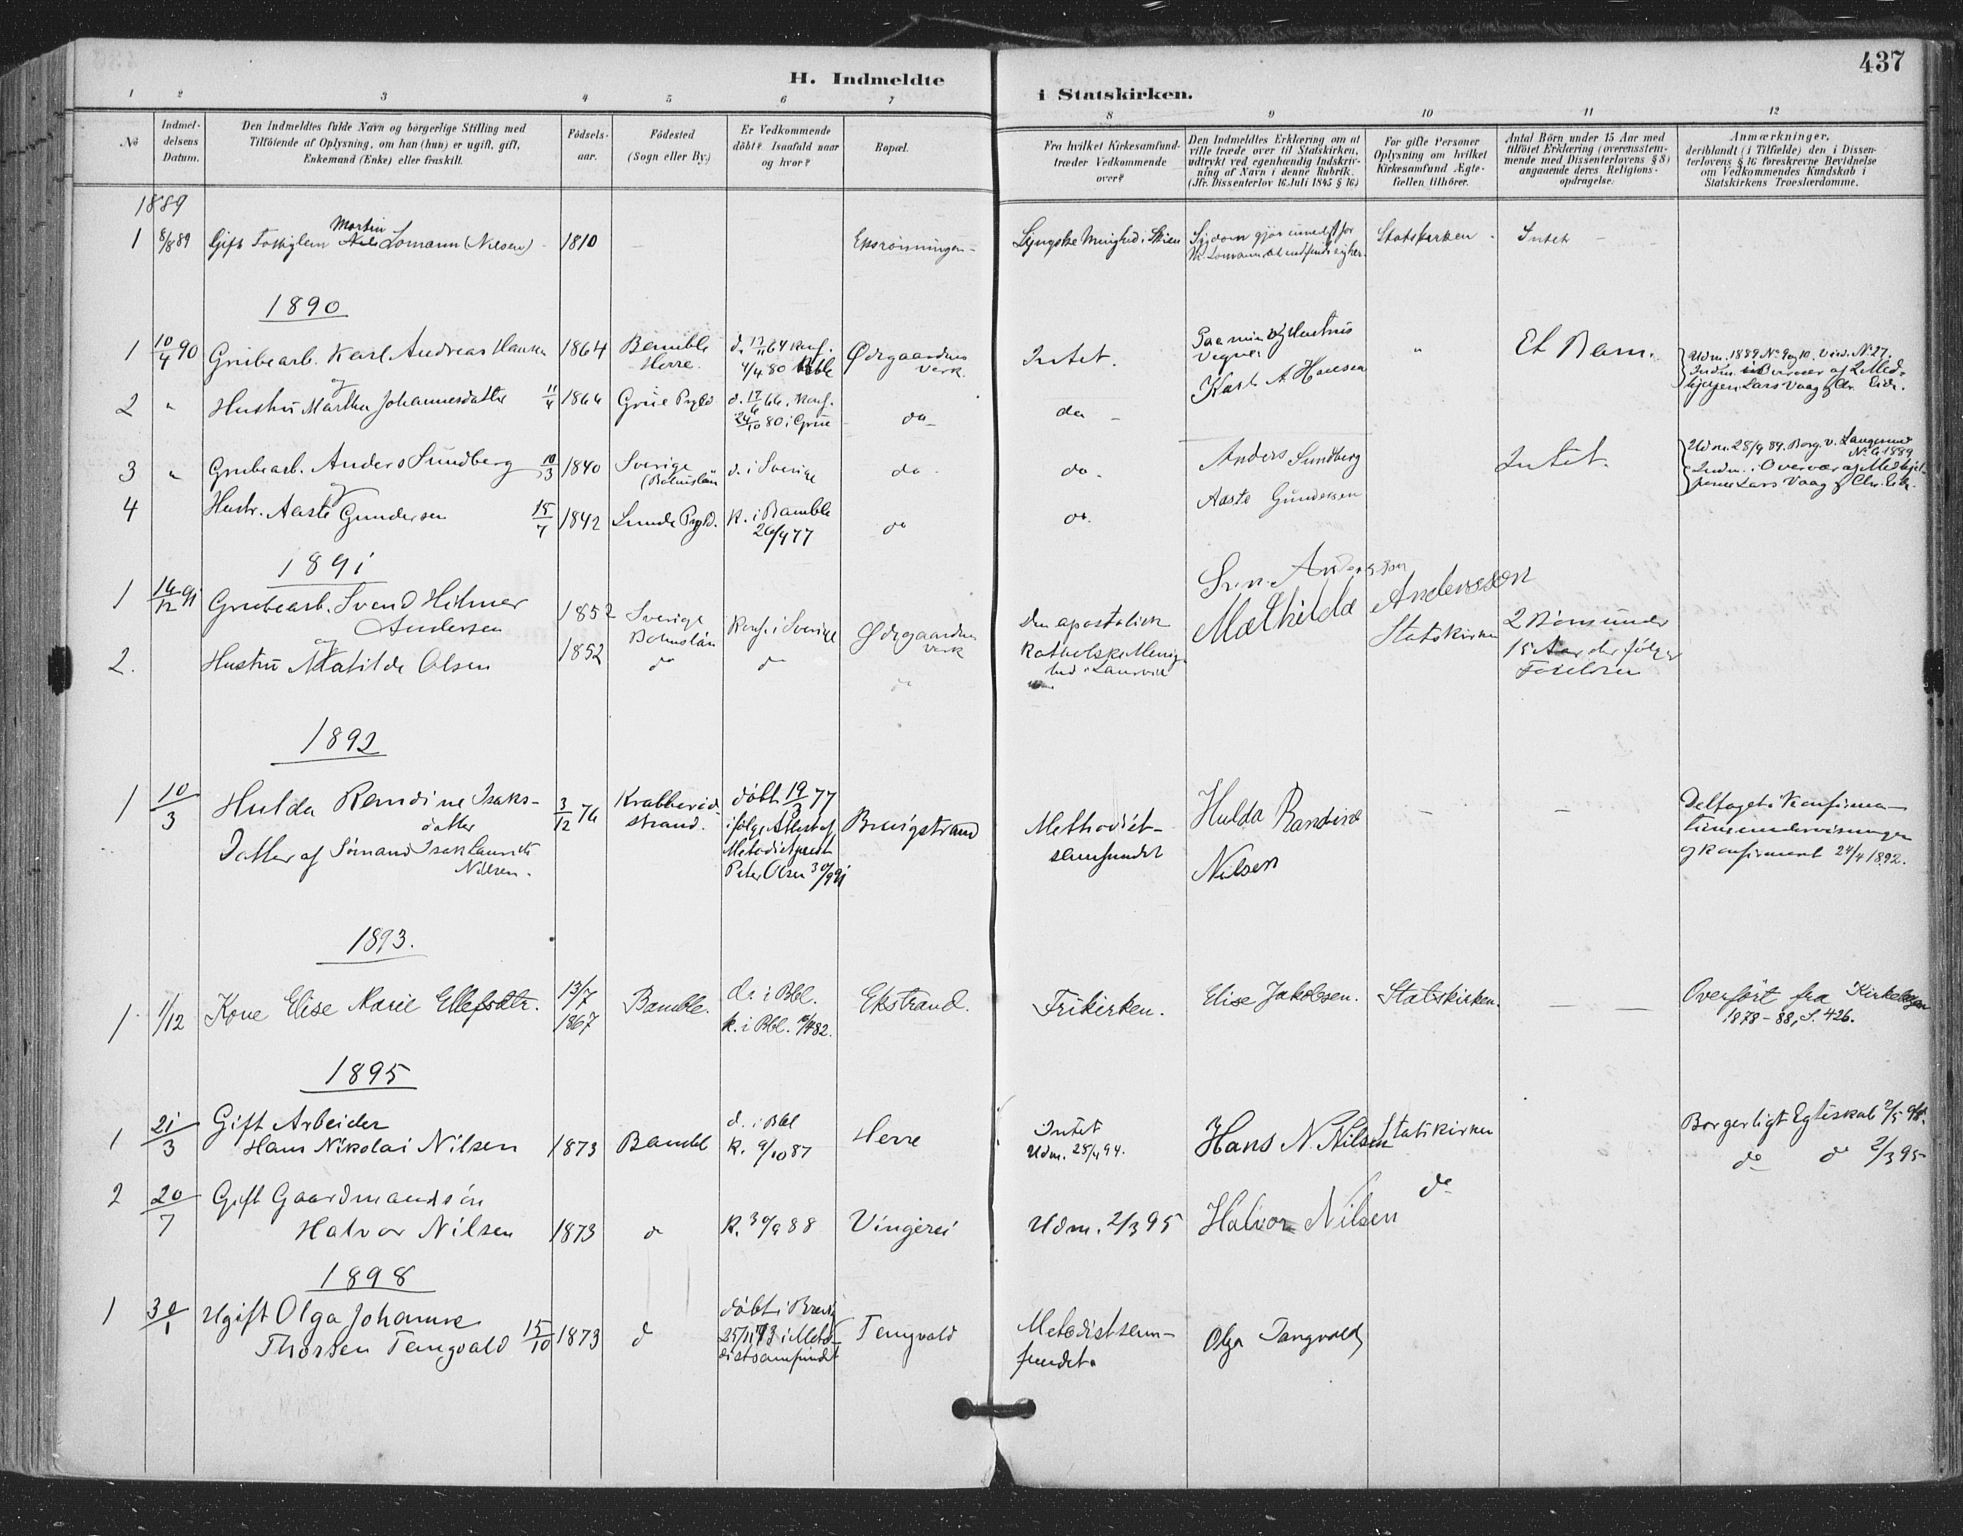 437
H. Indmeldte i Statskirken.
1 2 3 4 5 6 7 8 9 10 11 12
No
Indmel-
delsens
Datum.
Den Indmeldtes fulde Navn og borgerlige Stilling med
Tilföiende af Oplysning, om han (hun) er ugift, gift,
Enkemand (Enke) eller fraskilt.
Födsels-
aar.
Födested
(Sogn eller By.)
Er Vedkommende
döbt? Isaafald naar
og hvor?
Bopæl.
Fra hvilket Kirkesamfund
træder Vedkommende
over?
Den Indmeldtes Erklæring om at
ville træde over til Statskirken,
udtrykt ved egenhændig Indskriv-
ning af Navn i denne Rubrik.
(Jfr. Dissenterlov 16 Juli 1845 § 16.)
For gifte Personer
Oplysning om hvilket
Kirkesamfund Ægte-
fællen tilhörer.
Antal Börn under 15 Aar med
tilföiet Erklæring (overensstem-
mende med Dissenterlovens § 8)
angaaende deres Religions-
opdragelse.
Anmærkninger,
deriblandt (i Tilfælde) den i Dissen-
terlovens § 16 foreskrevne Bevidnelse
om Vedkommendes Kundskab i
Statskirkens Troeslærdomme.
1889
1 8/8 89 Gift Martin Lomann (Nilsen) 1810 Statskirken Intet
1890
1 10/4 90 Grubearb. Karl Andreas Hansen 1864 Bamble
Herre. Ødegaardens
Verk. Intet. Et Barn.
Karl A Hansen
2 " og Hustru Martha Johannesdatter 11/4 1864 Grue Pgld do do
3 " Grubearb. Anders Sundberg 10/3 1840 Sverige
(Bohuslän d. i Sverige do do. Anders Sundberg Intet.
4 og Hustr. Aaste Gundersen 15/7 1842 Lunde Pgld. k. i Bamble
26/9 77 do do. Aaste Gundersen
1891
1 16/12 91 Grubearb. Svend Hilmer
Andersen 1852 Sverige
Bohuslän Konf. i Sverige Ødegaardens
Verk Den apostolisk
Katholske Menig-
hed i Laurvik Andersson Statskirken 2 Børn under
15 Aar der følger
Forældren
2. og Hustru Matilde Olsen 1852 do do do Mathilda Andersson
1892
1 10/3 Hulda Randine Isaks-
datter
Datter af Sømand Isak Laurits
Nilsen. 3/12 76 Krabberød-
strand. døbt 19/3 77
ifølge Attest af
Metodistprest
Peter Olsen 30/9 91 Brevigstrand Methodist-
samfundet Hulda Randine
Nilsen — — Deltaget i Konfirma-
tionsundervisningen
og konfirmeret 24/4 1892.
1893.
1 1/12 Kone Elise Marie Ellefsdtr. 13/7
1867 Bamble. d. i Bbl.
Ekstrand. Frikirken. Elise Jakobsen. Statskirken. — Overført fra Kirkebogen
1878-88, S. 426.
1895
1 21/3 Gift Arbeider
Hans Nikolai Nilsen 1873 Bambl d. i Bbl
k. 9/10 87 Herre Intet
Udm. 25/4 94. Hans N. Nilsen Statskirken Borgerligt Egteskab
2 20/7 Gift Gaardmandsøn
Halvor Nilsen 1873 do k. 30/9 88 Vingerei Udm. 2/3 95 Halvor Nilsen do do do 2/3 95
1898
1 30/1 Ugift Olga Johanne
Thorsen Tangvald 15/10 1873 do døbt i Brevig
25/11 73 i Meto-
distsamfundet Tangvald Metodistsam-
fundet. Olga Tangvald